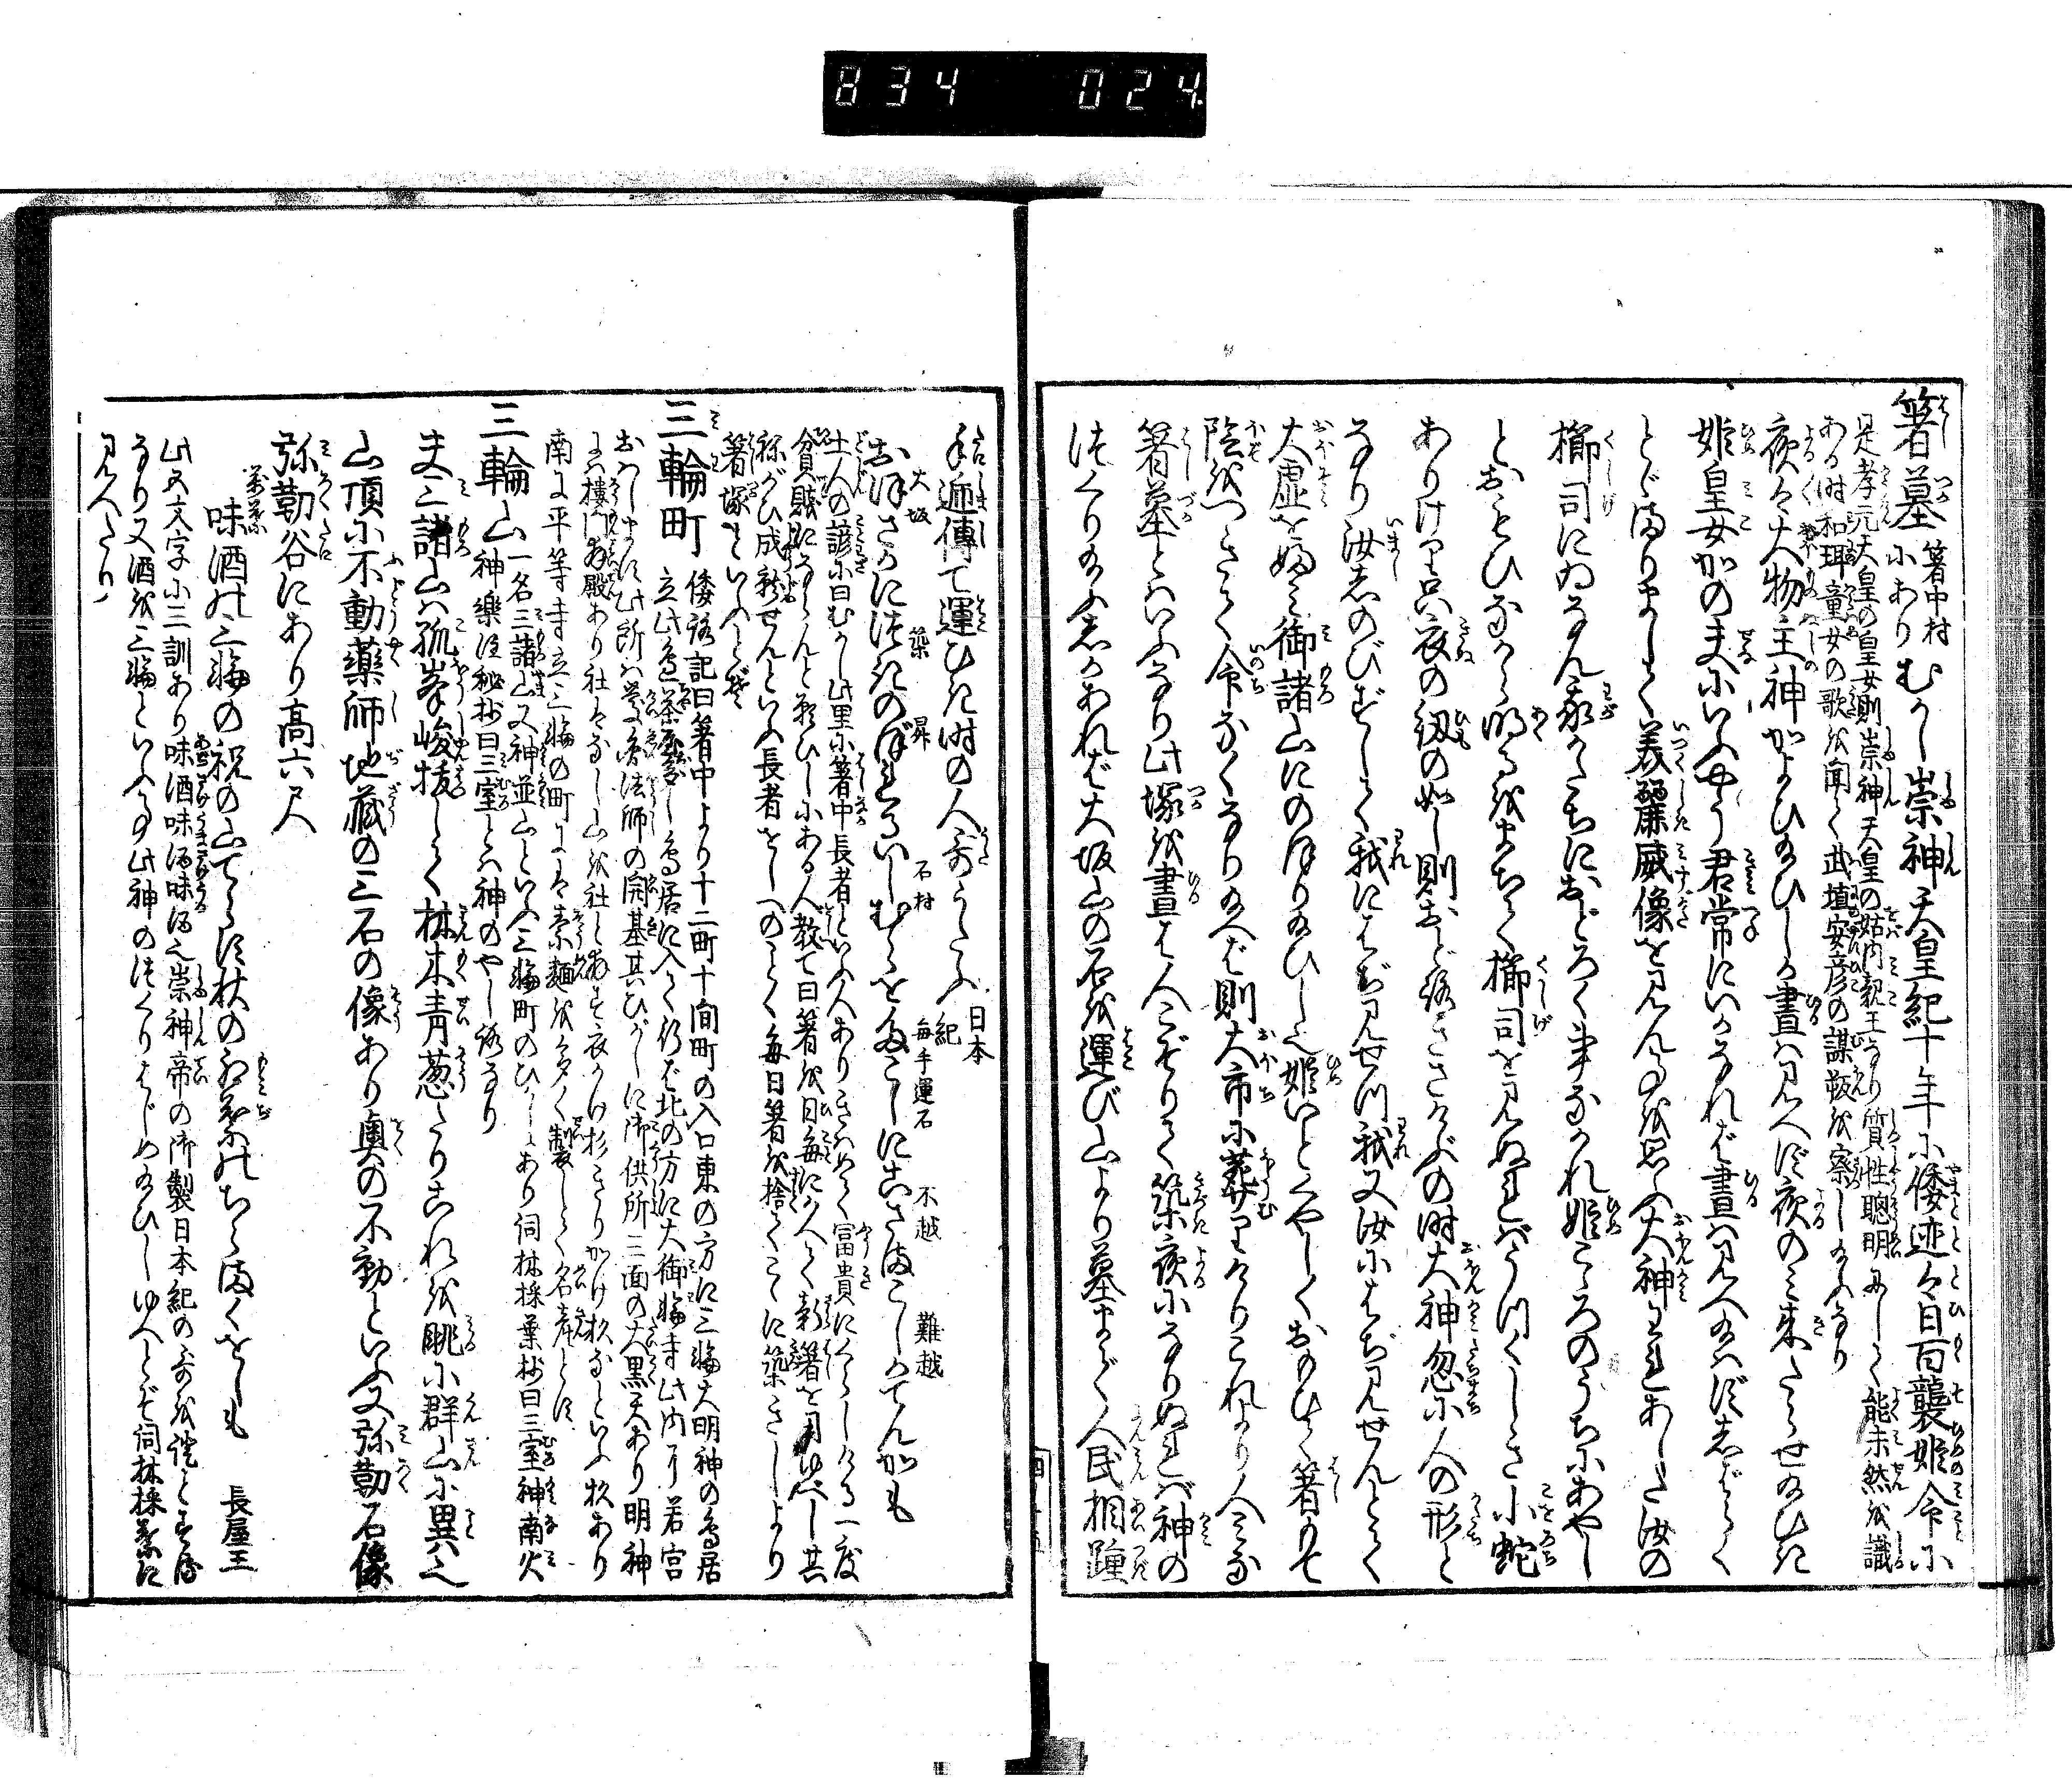 834 024.
箸墓 箸中村にあり むかし崇神天皇紀十年に倭迹々日百襲姫命に
是孝元天皇の皇女則崇神天皇の姑内親王なり質性聰明にして能未然を識
ある時和珥童女の歌を聞て武埴安彦の謀叛を察し給ふなり
夜々大物主神かよひ給ひしか晝ハ見へず夜のミ来たらせ給ひき
姫皇女かの夫にいふやう君常にいらるれど晝ハ見へ給はずしばらく
とどまりまして美麗威像を見ん事を思ふ大神これあした汝の
櫛司にゐなん我かたちにおどろく事なかれ姫こころのうちにあやし
とおもひながら明るをまちて櫛司を見ぬればうつくしき小蛇
ありけり只衣の紐の如し則おどろきさけぶの時大神忽に人の形と
なり汝しのびずして我にはぢ見せつ我又汝にはぢ見せんとて
大虚をふミ御諸山にのほり給ひし也姫いとくやしくおもひて箸もて
陰をつきて命なくなり給へば則大市に葬りけりこれより人ミな
箸墓とハいふなり此塚を晝は人こぞりて築夜になりぬれば神の
つくり給ふしかあれば大坂山の石を運び山より墓まで人民相踵
手逓傳て運びき時の人哥うたふ 日本紀
大坂 築 昇 石村 毎手運石 不越 難越
おほさかにつきのぼれるいしむらをたごしにこさばこしかてんかも
土人の諺に曰むかし此里に箸中長者といふ人ありきはめて富貴にくらしける一度
貧賤にならんと願ひしにある人教て曰箸を日毎に入て新箸を用ゆべし其
ねがひ成就せんといふ長者をしへのことく毎日箸を捨てここに築きしより
箸塚とハいふとぞ
三輪町 倭路記曰箸中より十二町十間町の入口東の方に三輪大明神の鳥居
立此邊茶屋多し鳥居に入て行ば北の方に大御輪寺此内に若宮
おはします此所ハ慶圓法師の開基其ひがしに御供所三面の大黒天あり明神
にハ樓門拜殿あり社はなし山を社とあがむ衣かけ杉きりかけ杉などいふ杉あり
南に平等寺立三輪の町には素麺を多く製してく名産とす
三輪山 一名三諸山又神並山といふ三輪町のひがしにあり伺林採葉抄曰三室神南火
神樂注秘抄曰三室とハ神のやしろなり
夫三諸山ハ孤峯峻拔して林木青葱たりこれを眺に群山に異也
山頂に不動藥師地蔵の三石の像あり奥の不動といふ又弥勒石像
弥勒谷にあり高六尺
萬葉 味酒の三輪の祝の山てらす秋の紅葉のちらまくをしも 長屋王
此五文字に三訓あり味酒味酒味酒也崇神帝の御製日本紀の哥を證とする
なり又酒を三輪といふ事此神のつくりはじめ給ひしゆへとぞ詞林採葉に
見へたり